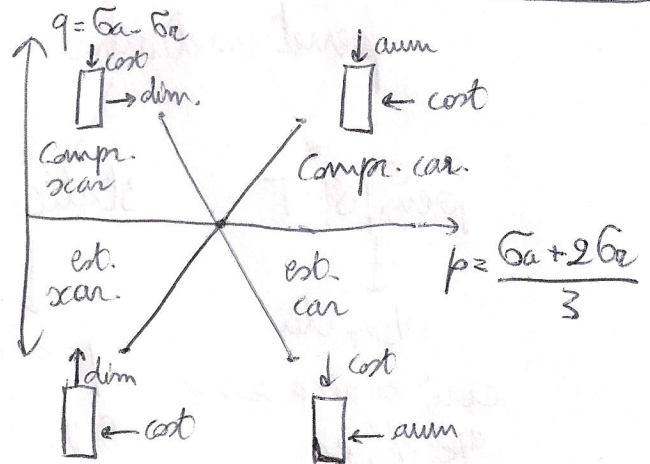 q = σa - σr
cost
dim.
aum
cost
compr.
scar
compr. car.
p = σa + 2σr
3
est.
scar.
est.
car
dim
cost
cost
aum